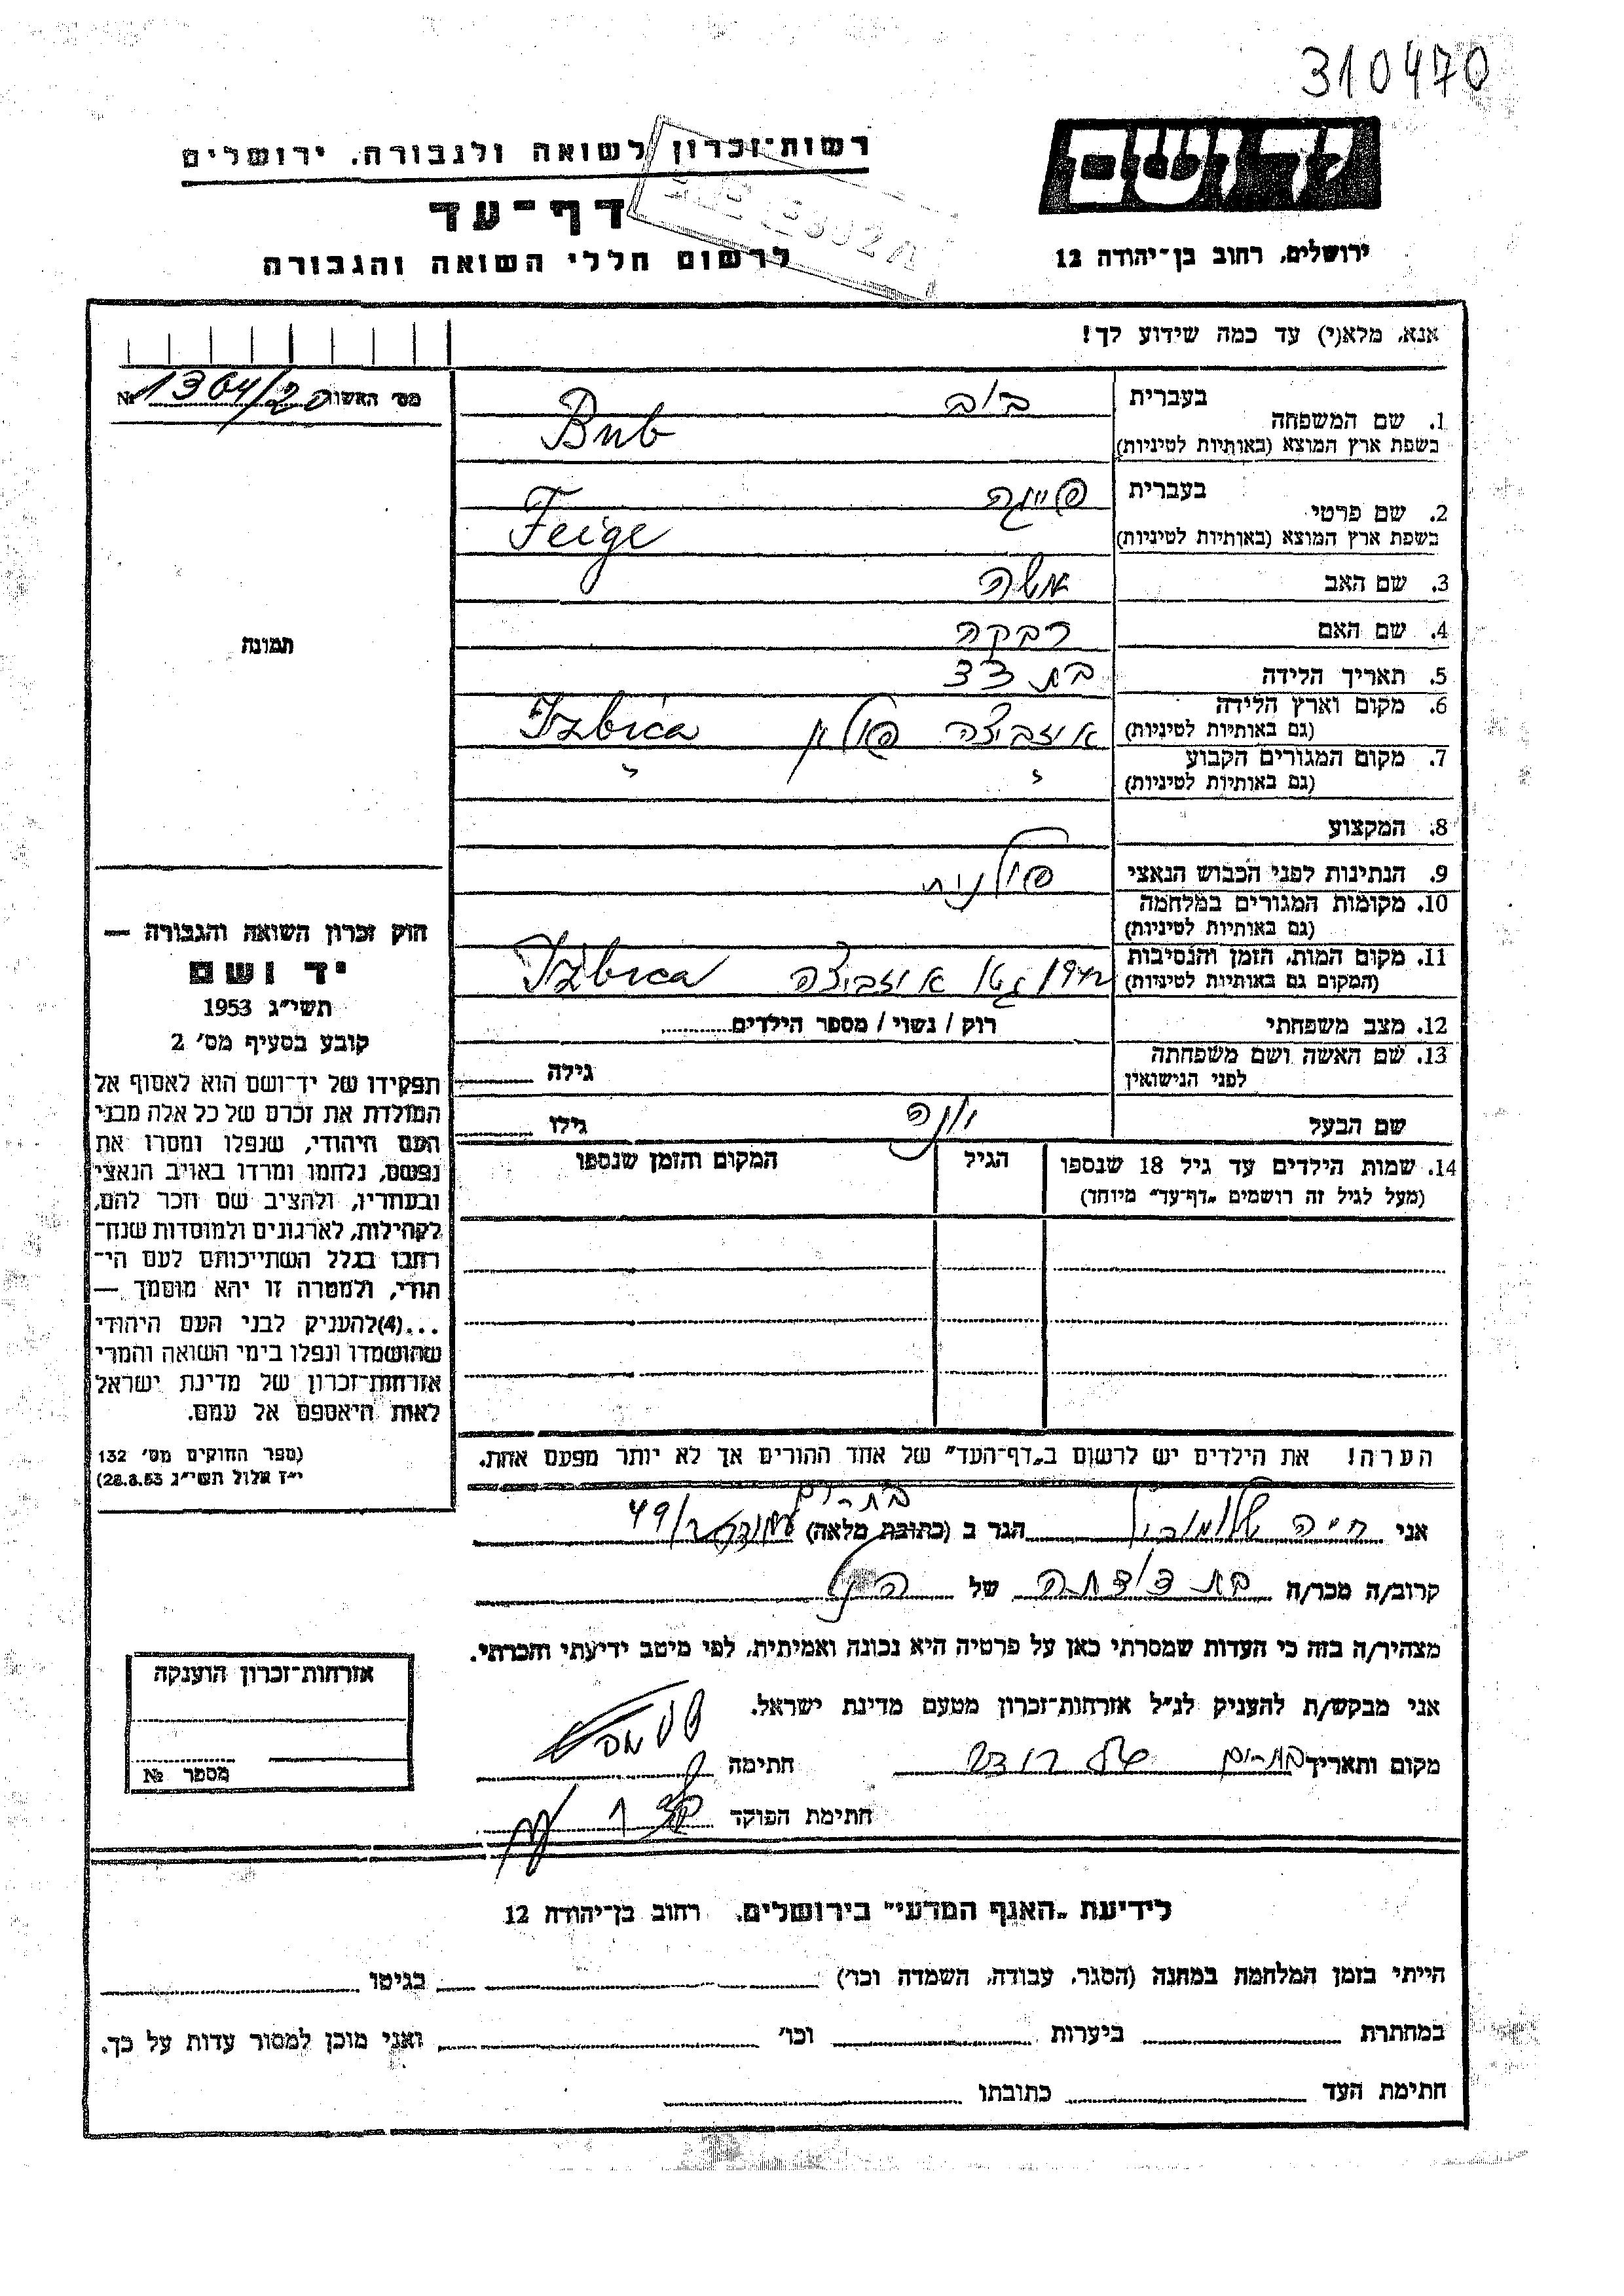 310470
יד ושם
רשות־זכרון לשואה ולגבורה, ירושלים
דף־עד
ירושלים, רחוב בן־יהודה 12
לרשום חללי השואה והגבורה
אנא, מלא(י) עד כמה שידוע לך!
מס׳ האשור 1364/20 №
1. שם המשפחה
בעברית בוב
בשפת ארץ המוצא (באותיות לטיניות) Bub
2. שם פרטי
בעברית פייגה
בשפת ארץ המוצא (באותיות לטיניות) Feige
3. שם האב משה
4. שם האם רבקה
תמונה
5. תאריך הלידה בת 33
6. מקום וארץ הלידה
(גם באותיות לטיניות) איזביצה פולין Izbica
7. מקום המגורים הקבוע
(גם באותיות לטיניות)
8. המקצוע
9. הנתינות לפני הכבוש הנאצי פולנית
10. מקומות המגורים במלחמה
(גם באותיות לטיניות)
11. מקום המות, הזמן והנסיבות
(המקום גם באותיות לטיניות) גטו איזביצה Izbica
12. מצב משפחתי רוק / נשוי / מספר הילדים
13. שם האשה ושם משפחתה
לפני הנישואין גילה
שם הבעל יונה גילו
14. שמות הילדים עד גיל 18 שנספו
(מעל לגיל זה רושמים „דף־עד״ מיוחד)
הגיל
המקום והזמן שנספו
הערה! את הילדים יש לרשום ב„דף־העד״ של אחד ההורים אך לא יותר מפעם אחת.
חוק זכרון השואה והגבורה —
יד ושם
תשי״ג 1953
קובע בסעיף מס׳ 2
תפקידו של יד־ושם הוא לאסוף אל
המולדת את זכרם של כל אלה מבני
העם היהודי, שנפלו ומסרו את
נפשם, נלחמו ומרדו באויב הנאצי
ובעוזריו, ולהציב שם וזכר להם,
לקהילות, לארגונים ולמוסדות שנח־
רבו בגלל השתייכותם לעם הי־
הודי, ולמטרה זו יהא מוסמך —
...(4) להעניק לבני העם היהודי
שהושמדו ונפלו בימי השואה והמרי
אזרחות־זכרון של מדינת ישראל
לאות היאספם אל עמם.
(ספר החוקים מס׳ 132
י״ז אלול תשי״ג 28.8.53)
אני חיה הגר ב (כתובת מלאה) בת־ים 49/
קרוב/ה מכר/ה בת דודתה של
מצהיר/ה בזה כי העדות שמסרתי כאן על פרטיה היא נכונה ואמיתית, לפי מיטב ידיעתי והכרתי.
אני מבקש/ת להעניק לנ״ל אזרחות־זכרון מטעם מדינת ישראל.
מקום ותאריך בת־ים חתימה
חתימת הפוקד
אזרחות־זכרון הוענקה
מספר №
לידיעת „האגף המדעי״ בירושלים, רחוב בן־יהודה 12
הייתי בזמן המלחמה במחנה (הסגר, עבודה, השמדה וכו׳) בגיטו
במחתרת ביערות וכו׳ ואני מוכן למסור עדות על כך.
חתימת העד כתובתו